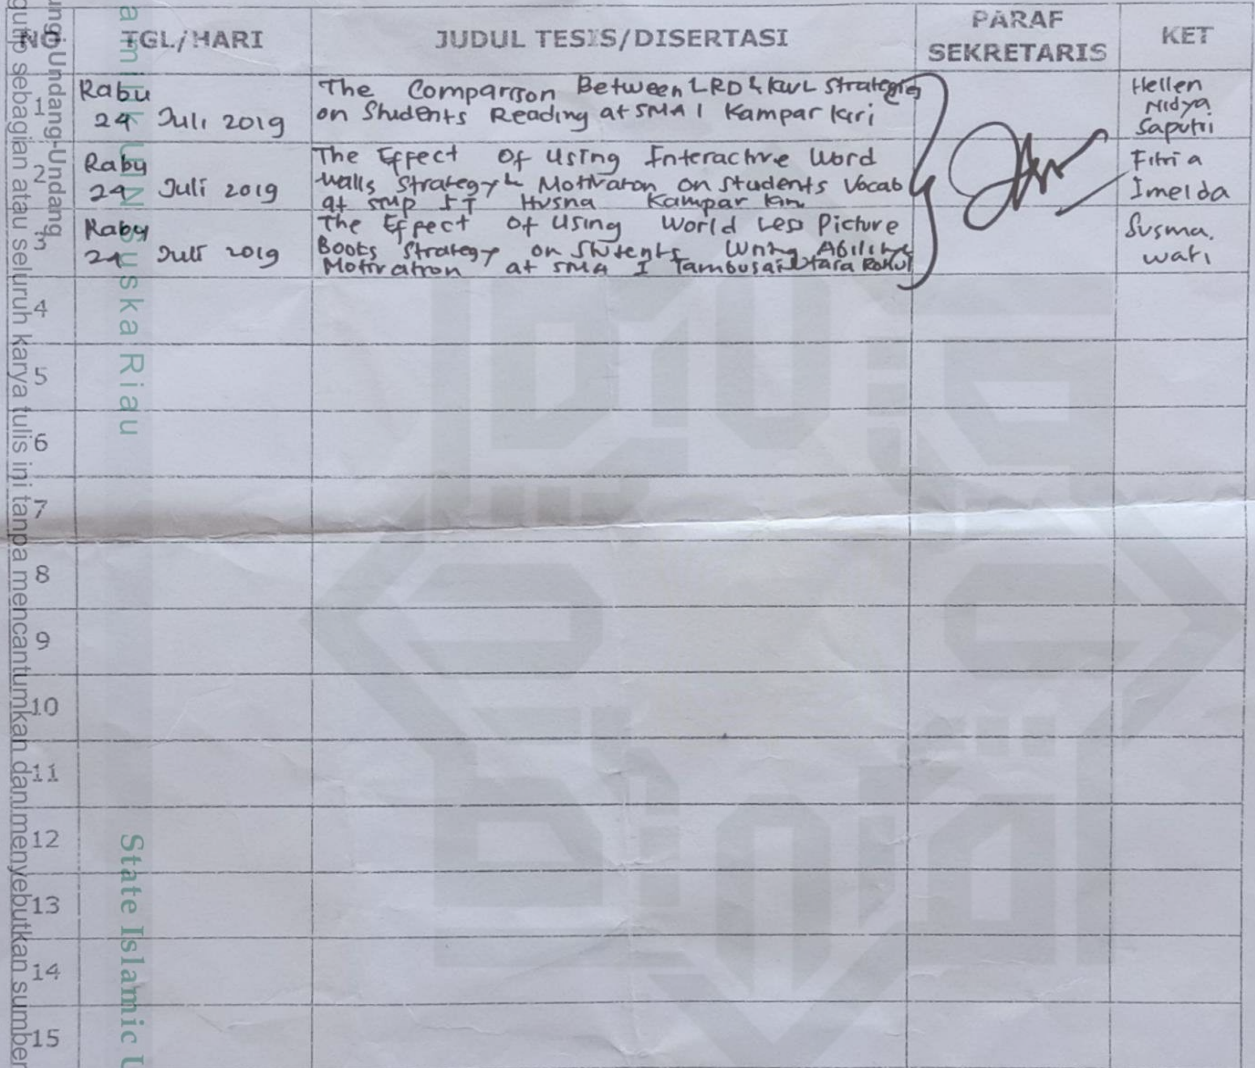 NO TGL/HARI JUDUL TESIS/DISERTASI PARAF SEKRETARIS KET
1 Rabu 24 Juli 2019
The Comparison Between LRD & KWL Strategies
on Students Reading at SMA 1 Kampar Kiri
Hellen
Nidya
Saputri
2 Rabu 24 Juli 2019
The Effect Of Using Interactive Word
Walls Strategy & Motivaton on Students Vocab
at SMP IT Husna Kampar Kiri
Fitria
Imelda
3 Rabu 24 Juli 2019
The Effect Of Using World Less Picture
Books Strategy on Students Writing Ability &
Motivation at SMA 1 Tambusai Utara Rohul
Susma.
wati
4
5
6
7
8
9
10
11
12
13
14
15
Undang-Undang
sebagian atau seluruh karya tulis ini tanpa mencantumkan dan menyebutkan sumber
milik UIN Suska Riau
State Islamic U